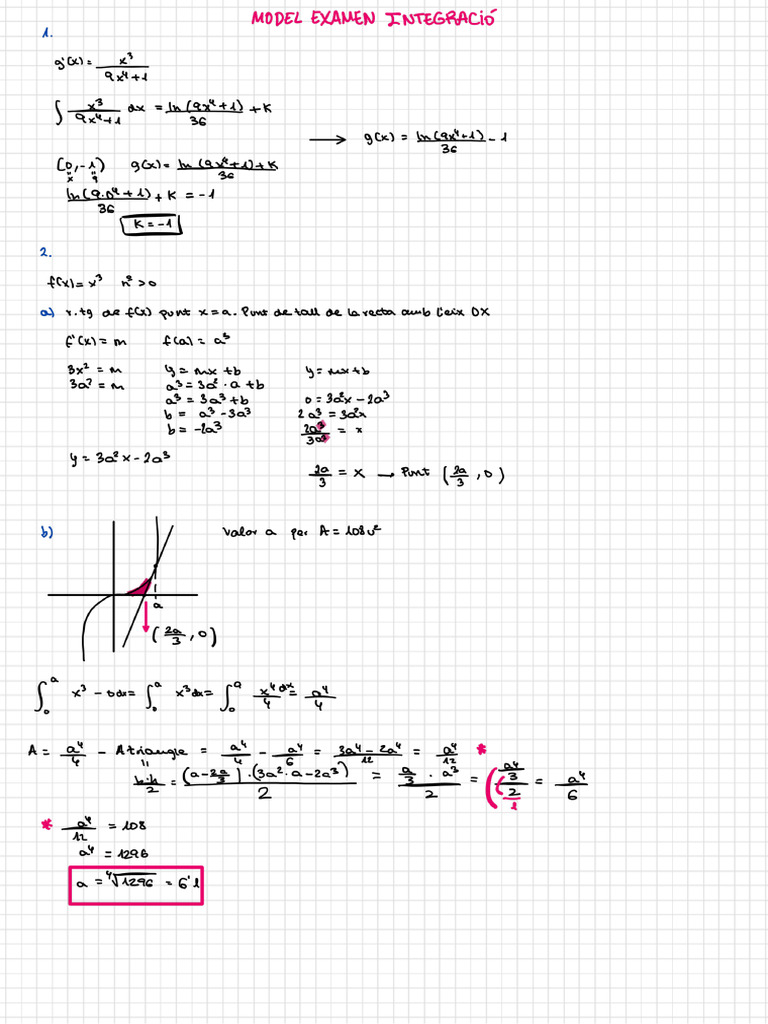 MODEL EXAMEN INTEGRACIÓ
1.
g'(x) = x³ / 9x⁴+1
∫ x³ / 9x⁴+1 dx = ln(9x⁴+1) / 36 + K
→ g(x) = ln(9x⁴+1) / 36 - 1
(0,-1) g(x) = ln(9x⁴+1) + K / 36
x y
ln(9·0⁴+1) / 36 + K = -1
K = -1
2.
f(x) = x³
a) r.tg de f(x) punt x=a. Punt de tall de la recta amb l'eix OX
f'(x) = m f(a) = a³
3x² = m y = mx+b y = mx+b
3a² = m a³ = 3a²·a+b
a³ = 3a³+b 0 = 3a²x - 2a³
b = a³-3a³ 2a³ = 3a²x
b = -2a³ 2a³ / 3a² = x
y = 3a²x - 2a³
2a / 3 = x → Punt (2a/3, 0)
b) Valor a per A = 108u²
a
(2a/3, 0)
∫₀ᵃ x³ - 0dx = ∫₀ᵃ x³dx = ∫₀ᵃ x⁴/4 dx = a⁴/4
A = a⁴/4 - A triangle = a⁴/4 - a⁴/6 = 3a⁴-2a⁴ / 12 = a⁴/12 *
b·h / 2 = (a-2a/3)·(3a²·a-2a³) / 2 = a/3 · a³ / 2 = a⁴/3 / 2/1 = a⁴/6
* a⁴/12 = 108
a⁴ = 1296
a = ⁴√1296 = 6'1